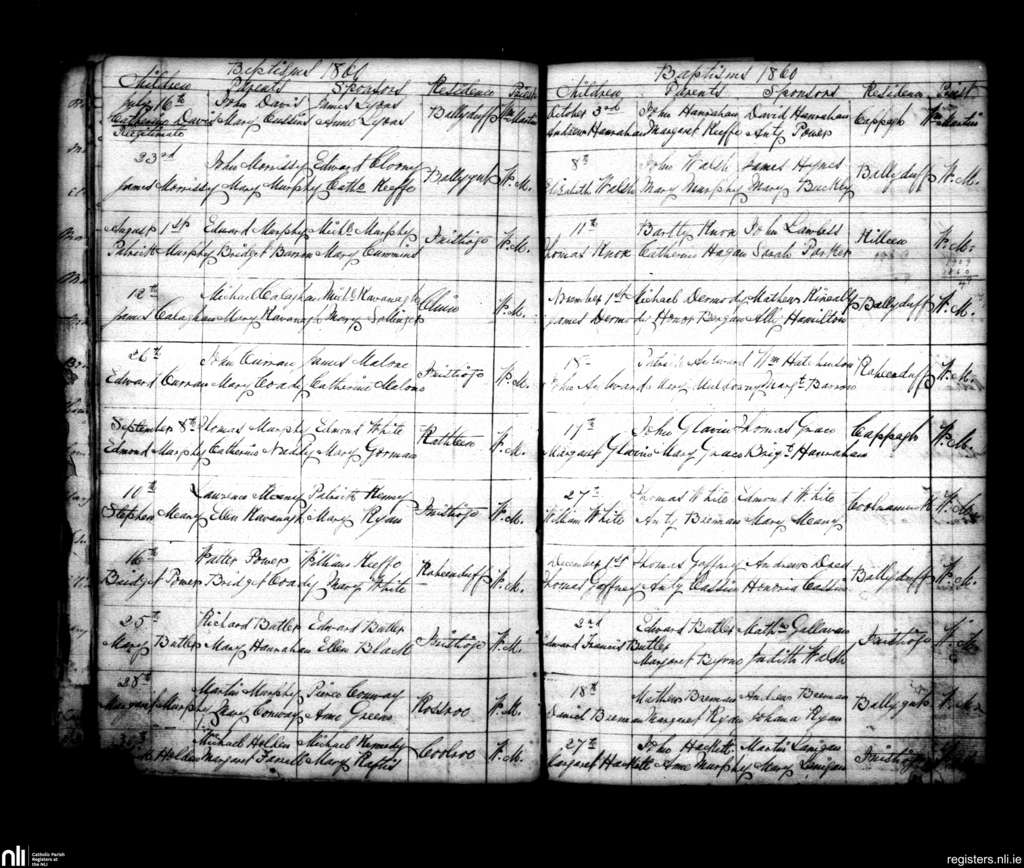 Baptisms 1860
Children Parents Sponsors Residence Priest
July 16th John Davis James Lyons
Catherine Davis Mary Cassins Anne Lyons Ballyduff Wm Martin
Illegitimate
23rd John Morrissy Edward Cloony
James Morrissy Mary Murphy Cath. Keeffe W. M.
August 1st Edward Murphy Michl. Murphy
Patrick Murphy Bridget Barron Mary Cummins Inistioge W. M.
12th Michael Calaghan Michl Kavanagh
James Calaghan Mary Kavanagh W. M.
26th John Curran James Malone
Edward Curran Mary Coady Catherine Malone Inistioge W. M.
September 8th Thomas Murphy Edmond White
Edmond Murphy Catherine Neddy Mary Gorman W. M.
10th Laurence Meany Patrick Kenny
Stephen Meany Ellen Kavanagh Mary Ryan Inistioge W. M.
16th Walter Power William Keeffe
Bridget Power Bridget Coady Mary White W. M.
25th Richard Butler Edward Butler
Mary Butler Mary Hanrahan Ellen Black Inistioge W. M.
28th Martin Murphy Pierce Conway
Margaret Murphy Mary Conway Anne Greene Rossroo W. M.
Michael Holden Michael
Holden Margaret Farrell Mary Raftis Coolroo W. M.
Baptisms 1860
Children Parents Sponsors Residence Priest
October 3rd John Hanrahan David Hanrahan
Andrew Hanrahan Margaret Keeffe Anty Power Cappagh Wm Martin
8th John Walsh James Hynes
Elizabeth Walsh Mary Murphy Mary Buckley Ballyduff W. M.
11th Bartly Knox John Lambert
Thomas Knox Catherine Hagan Sarah Parker Killeen W. M.
November 1st Michael Dermody Mathew
James Dermody Honor Bergan Ally Hamilton Ballyduff W. M.
Wm Hutchinson
Mary Margt. Barron W. M.
17th John Glavin Thomas Grace
Margaret Glavin Mary Grace Brigt. Hanrahan Cappagh W. M.
27th Thomas White Edmond White
William White Anty Brennan Mary Meany W. M.
December 1st Thomas Gaffney Andrew
Thomas Gaffney Anty Cassin Cassin Ballyduff W. M.
2nd Edward Butler Mathw Gallavan
Edward Francis Butler Inistioge W. M.
Margaret Byrne Judith Walsh
18th Mathew Brennan Andrew Brennan
Daniel Brennan Margaret Ryan Johana Ryan W. M.
27th John Hackett Martin Lanigan
Margaret Hackett Anne Murphy Mary Lanigan Inistioge
nli
Catholic Parish
Registers at
the NLI
registers.nli.ie